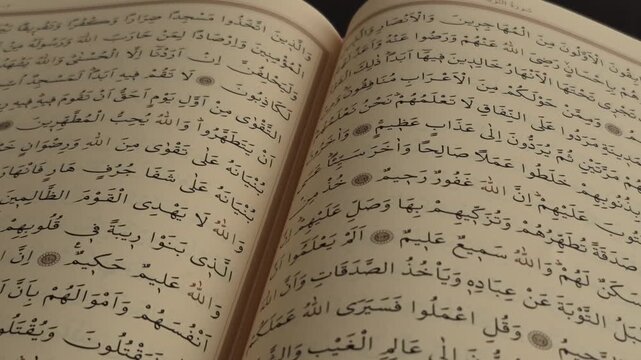 سُورَةُ التَّوْبَةِ
الْاَوَّلُونَ مِنَ الْمُهَاجِرِينَ وَالْاَنْصَارِ
بِاِحْسَانٍ رَضِيَ اللّٰهُ عَنْهُمْ وَرَضُوا عَنْهُ وَاَعَدَّ
تَجْرِي تَحْتَهَا الْاَنْهَارُ خَالِدِينَ فِيهَا اَبَدًا ذٰلِكَ
وَمِمَّنْ حَوْلَكُمْ مِنَ الْاَعْرَابِ مُنَافِقُونَ
مَرَدُوا عَلَى النِّفَاقِ لَا تَعْلَمُهُمْ نَحْنُ نَعْلَمُهُمْ
مَرَّتَيْنِ ثُمَّ يُرَدُّونَ اِلٰى عَذَابٍ عَظِيمٍ وَاٰخَرُونَ
خَلَطُوا عَمَلًا صَالِحًا وَاٰخَرَ سَيِّئًا
عَلَيْهِمْ اِنَّ اللّٰهَ غَفُورٌ رَحِيمٌ خُذْ
صَدَقَةً تُطَهِّرُهُمْ وَتُزَكِّيهِمْ بِهَا وَصَلِّ عَلَيْهِمْ
سَكَنٌ لَهُمْ وَاللّٰهُ سَمِيعٌ عَلِيمٌ اَلَمْ يَعْلَمُوا
التَّوْبَةَ عَنْ عِبَادِهِ وَيَاْخُذُ الصَّدَقَاتِ وَاَنَّ اللّٰهَ
وَقُلِ اعْمَلُوا فَسَيَرَى اللّٰهُ عَمَلَكُمْ
اِلٰى عَالِمِ الْغَيْبِ
وَالَّذِينَ اتَّخَذُوا مَسْجِدًا ضِرَارًا وَكُفْرًا وَتَفْرِيقًا
الْمُؤْمِنِينَ وَاِرْصَادًا لِمَنْ حَارَبَ اللّٰهَ وَرَسُولَهُ مِنْ
وَلَيَحْلِفُنَّ اِنْ اَرَدْنَا اِلَّا الْحُسْنٰى وَاللّٰهُ يَشْهَدُ
لَكَاذِبُونَ لَا تَقُمْ فِيهِ اَبَدًا لَمَسْجِدٌ اُسِّسَ
التَّقْوٰى مِنْ اَوَّلِ يَوْمٍ اَحَقُّ اَنْ تَقُومَ فِيهِ فِيهِ
اَنْ يَتَطَهَّرُوا وَاللّٰهُ يُحِبُّ الْمُطَّهِّرِينَ
بُنْيَانَهُ عَلٰى تَقْوٰى مِنَ اللّٰهِ وَرِضْوَانٍ خَيْرٌ
بُنْيَانَهُ عَلٰى شَفَا جُرُفٍ هَارٍ فَانْهَارَ
وَاللّٰهُ لَا يَهْدِي الْقَوْمَ الظَّالِمِينَ
الَّذِي بَنَوْا رِيبَةً فِي قُلُوبِهِمْ
وَاللّٰهُ عَلِيمٌ حَكِيمٌ اِنَّ
اَنْفُسَهُمْ وَاَمْوَالَهُمْ بِاَنَّ
فَيَقْتُلُونَ وَيُقْتَلُونَ